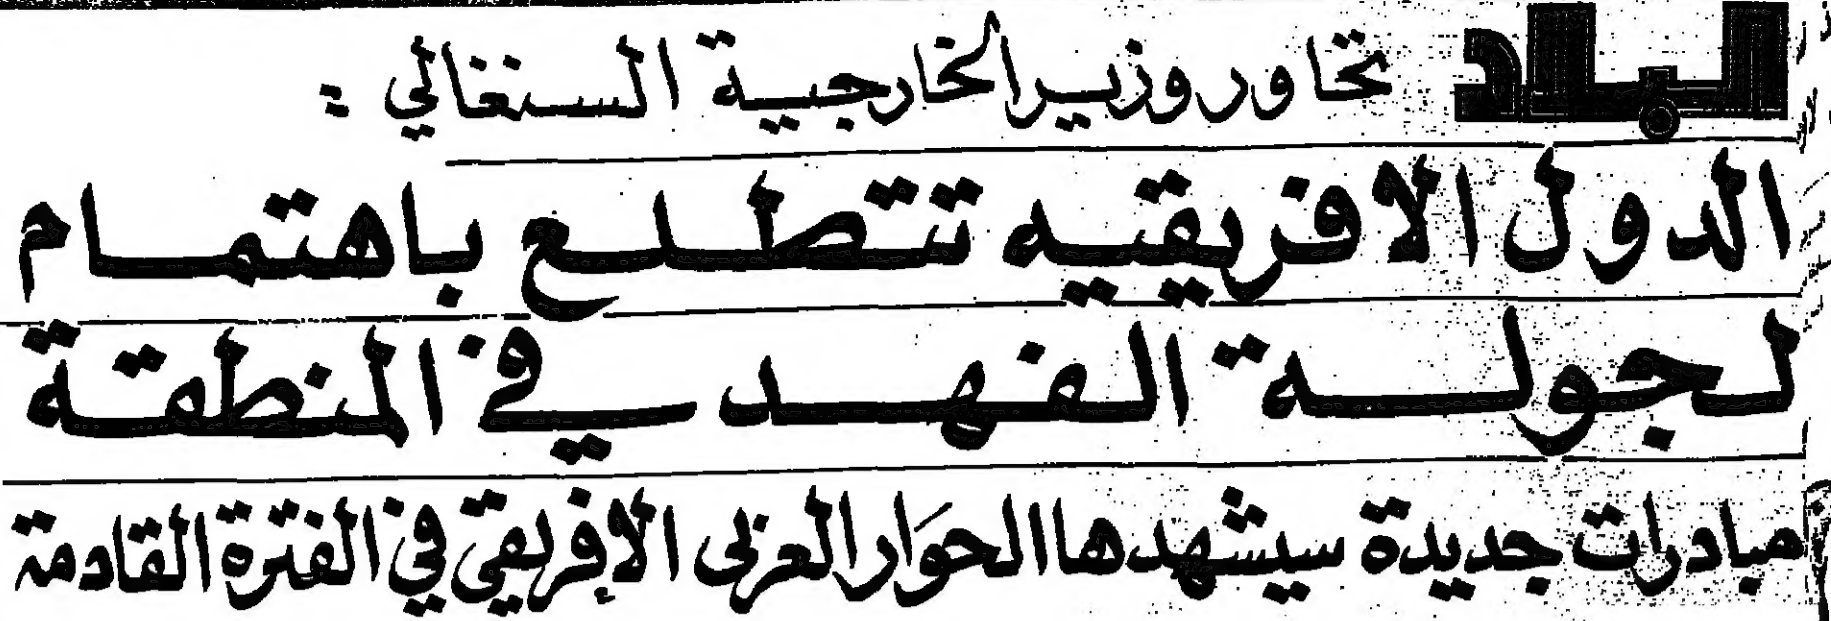 البلاد تحاور وزير الخارجية السنغالي :
الدول الافريقيه تتطلع باهتمام
لجولة الفهد في المنطقة
مبادرات جديدة سيشهدها الحوار العربى الإفريقي في الفترة القادمة